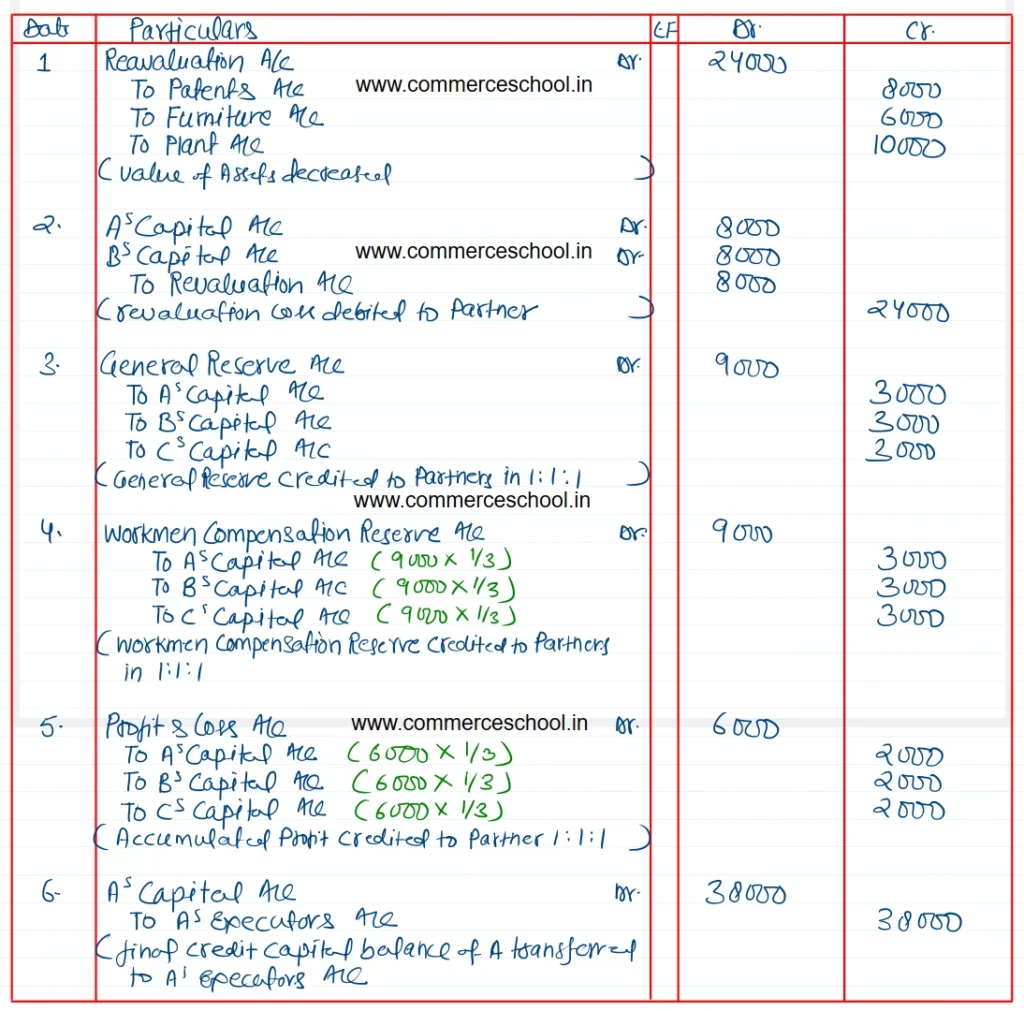 Date Particulars LF Dr. Cr.
1 Reavaluation A/c Dr. 24000
To Patents A/c www.commerceschool.in 8000
To Furniture A/c 6000
To Plant A/c 10000
(value of Assets decreased)
2. A's Capital A/c Dr. 8000
B's Capital A/c www.commerceschool.in Dr. 8000
To Revaluation A/c 8000
(revaluation loss debited to Partner) 24000
3. General Reserve A/c Dr. 9000
To A's Capital A/c 3000
To B's Capital A/c 3000
To C's Capital A/c 3000
(General Reserve credited to Partners in 1:1:1)
www.commerceschool.in
4. Workmen Compensation Reserve A/c Dr. 9000
To A's Capital A/c (9000 x 1/3) 3000
To B's Capital A/c (9000 x 1/3) 3000
To C's Capital A/c (9000 x 1/3) 3000
(Workmen Compensation Reserve credited to Partners
in 1:1:1
5. Profit & Loss A/c www.commerceschool.in Dr. 6000
To A's Capital A/c (6000 x 1/3) 2000
To B's Capital A/c (6000 x 1/3) 2000
To C's Capital A/c (6000 x 1/3) 2000
(Accumulated Profit credited to Partner 1:1:1)
6. A's Capital A/c Dr. 38000
To A's Executors A/c 38000
(final credit capital balance of A transferred
to A's Executors A/c